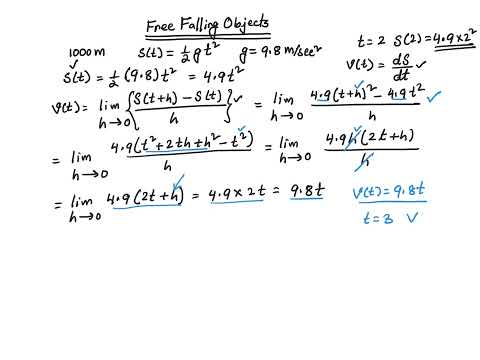 Free Falling Objects
1000m S(t) = 1/2 g t² g = 9.8 m/sec² t = 2 S(2) = 4.9×2²
S(t) = 1/2 (9.8) t² = 4.9t² v(t) = dS/dt
v(t) = lim h→0 { S(t+h) - S(t) / h } = lim h→0 4.9(t+h)² - 4.9t² / h
= lim h→0 4.9(t² + 2th + h² - t²) / h = lim h→0 4.9h(2t+h) / h
= lim h→0 4.9(2t+h) = 4.9×2t = 9.8t v(t) = 9.8t
t = 3 v